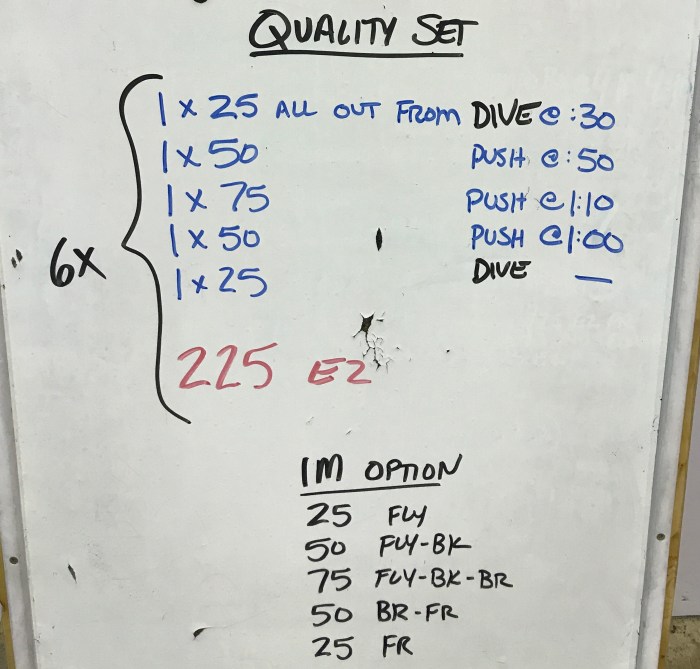 QUALITY SET
1 x 25 ALL OUT FROM DIVE @ :30
1 x 50 PUSH @ :50
1 x 75 PUSH @ 1:10
1 x 50 PUSH @ 1:00
6x
1 x 25 DIVE —
225 EZ
IM OPTION
25 FLY
50 FLY-BK
75 FLY-BK-BR
50 BR-FR
25 FR